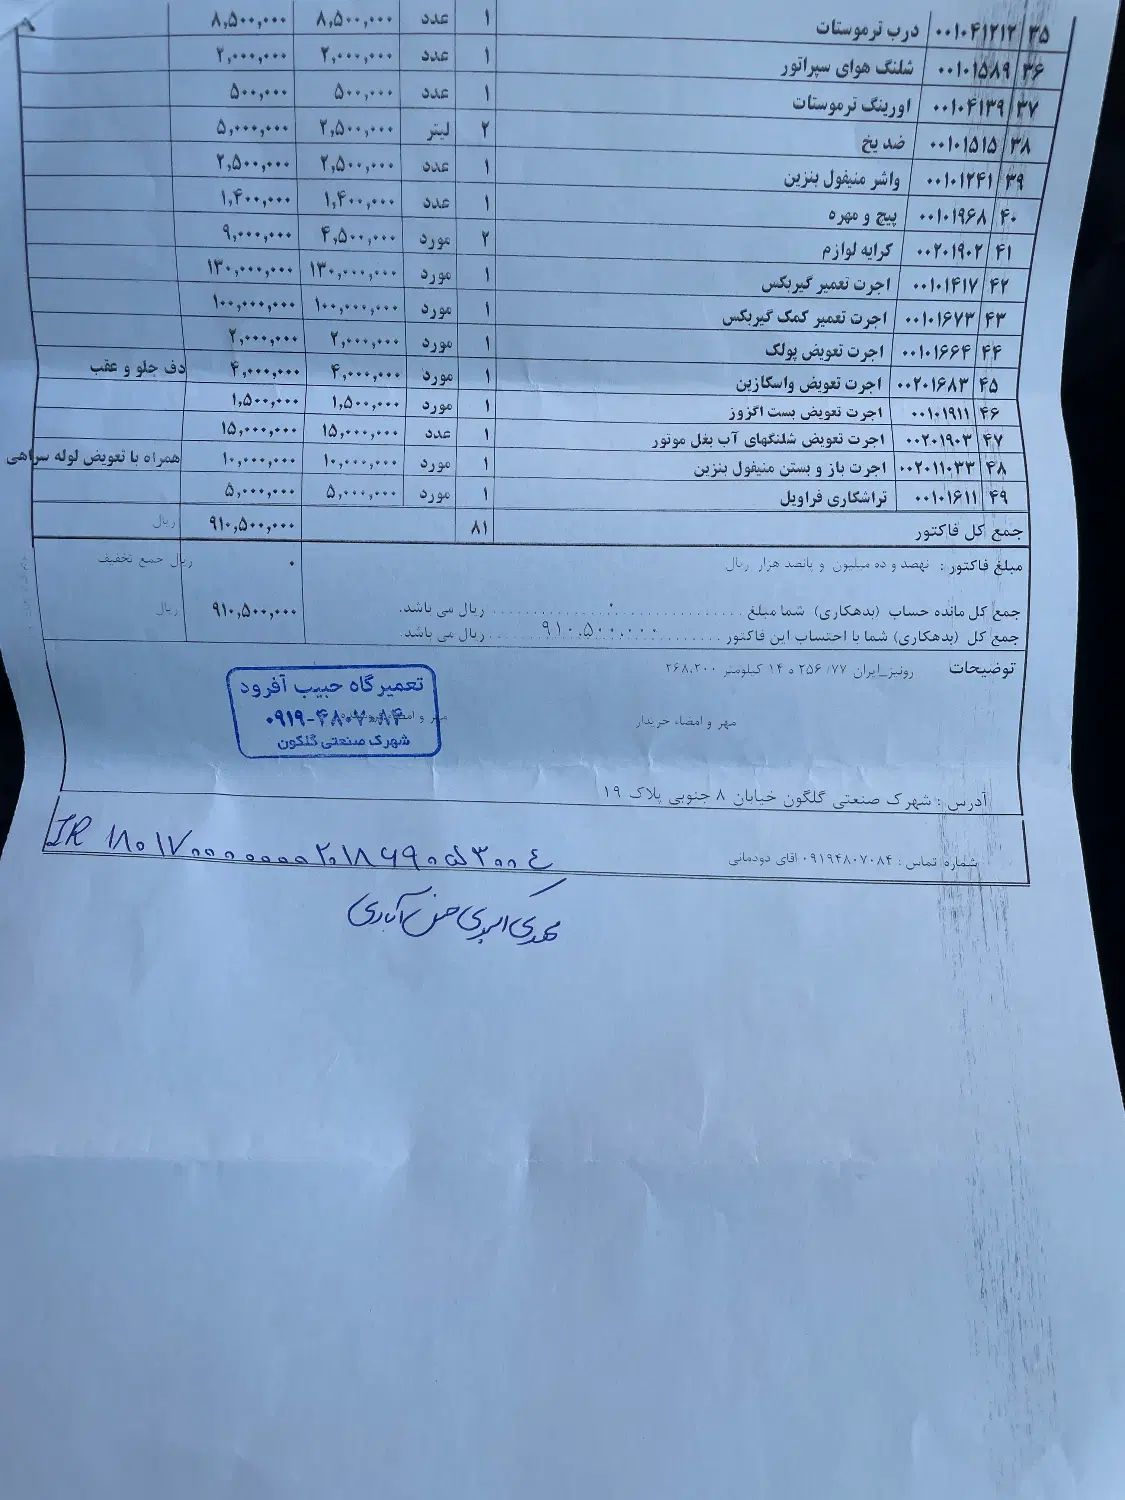 ۳۵ ۰۰۱۰۴۱۲۱۲ درب ترموستات ۱ عدد ۸,۵۰۰,۰۰۰ ۸,۵۰۰,۰۰۰
۳۶ ۰۰۱۰۱۵۸۹ شلنگ هوای سپراتور ۱ عدد ۲,۰۰۰,۰۰۰ ۲,۰۰۰,۰۰۰
۳۷ ۰۰۱۰۴۱۳۹ اورینگ ترموستات ۱ عدد ۵۰۰,۰۰۰ ۵۰۰,۰۰۰
۳۸ ۰۰۱۰۱۵۱۵ ضد یخ ۲ لیتر ۲,۵۰۰,۰۰۰ ۵,۰۰۰,۰۰۰
۳۹ ۰۰۱۰۱۲۴۱ واشر منیفول بنزین ۱ عدد ۲,۵۰۰,۰۰۰ ۲,۵۰۰,۰۰۰
۴۰ ۰۰۱۰۱۹۶۸ پیچ و مهره ۱ عدد ۱,۴۰۰,۰۰۰ ۱,۴۰۰,۰۰۰
۴۱ ۰۰۲۰۱۹۰۲ کرایه لوازم ۲ مورد ۴,۵۰۰,۰۰۰ ۹,۰۰۰,۰۰۰
۴۲ ۰۰۱۰۱۴۱۷ اجرت تعمیر گیربکس ۱ مورد ۱۳۰,۰۰۰,۰۰۰ ۱۳۰,۰۰۰,۰۰۰
۴۳ ۰۰۱۰۱۶۷۳ اجرت تعمیر کمک گیربکس ۱ مورد ۱۰۰,۰۰۰,۰۰۰ ۱۰۰,۰۰۰,۰۰۰
۴۴ ۰۰۱۰۱۶۶۴ اجرت تعویض پولک ۱ مورد ۲,۰۰۰,۰۰۰ ۲,۰۰۰,۰۰۰
۴۵ ۰۰۲۰۱۶۸۳ اجرت تعویض واسکازین ۱ مورد ۴,۰۰۰,۰۰۰ ۴,۰۰۰,۰۰۰ دف جلو و عقب
۴۶ ۰۰۱۰۱۹۱۱ اجرت تعویض بست اگزوز ۱ مورد ۱,۵۰۰,۰۰۰ ۱,۵۰۰,۰۰۰
۴۷ ۰۰۲۰۱۹۰۳ اجرت تعویض شلنگهای آب بغل موتور ۱ عدد ۱۵,۰۰۰,۰۰۰ ۱۵,۰۰۰,۰۰۰
۴۸ ۰۰۲۰۱۱۰۳۳ اجرت باز و بستن منیفول بنزین ۱ مورد ۱۰,۰۰۰,۰۰۰ ۱۰,۰۰۰,۰۰۰ همراه با تعویض لوله سراهی
۴۹ ۰۰۱۰۱۶۱۱ تراشکاری فراویل ۱ مورد ۵,۰۰۰,۰۰۰ ۵,۰۰۰,۰۰۰
جمع کل فاکتور ۸۱ ۹۱۰,۵۰۰,۰۰۰ ریال
مبلغ فاکتور : نهصد و ده میلیون و پانصد هزار ریال ۰ ریال جمع تخفیف
جمع کل مانده حساب (بدهکاری) شما مبلغ ............ ۰ ............ ریال می باشد. ۹۱۰,۵۰۰,۰۰۰ ریال
جمع کل (بدهکاری) شما با احتساب این فاکتور ........ ۹۱۰,۵۰۰,۰۰۰ ........ ریال می باشد.
توضیحات رونیز_ایران ۷۷/ ۲۵۶ ه ۱۴ کیلومتر ۲۶۸.۲۰۰
تعمیرگاه حبیب آفرود
مهر و امضاء خریدار
۰۹۱۹-۴۸۰۷۰۸۴
شهرک صنعتی گلگون
آدرس : شهرک صنعتی گلگون خیابان ۸ جنوبی پلاک ۱۹
شماره تماس : ۰۹۱۹۴۸۰۷۰۸۴ آقای دودمانی
IR ۱۸۰۱۷۰۰۰۰۰۰۰۲۰۱۸۶۹۰۵۳۰۰۴